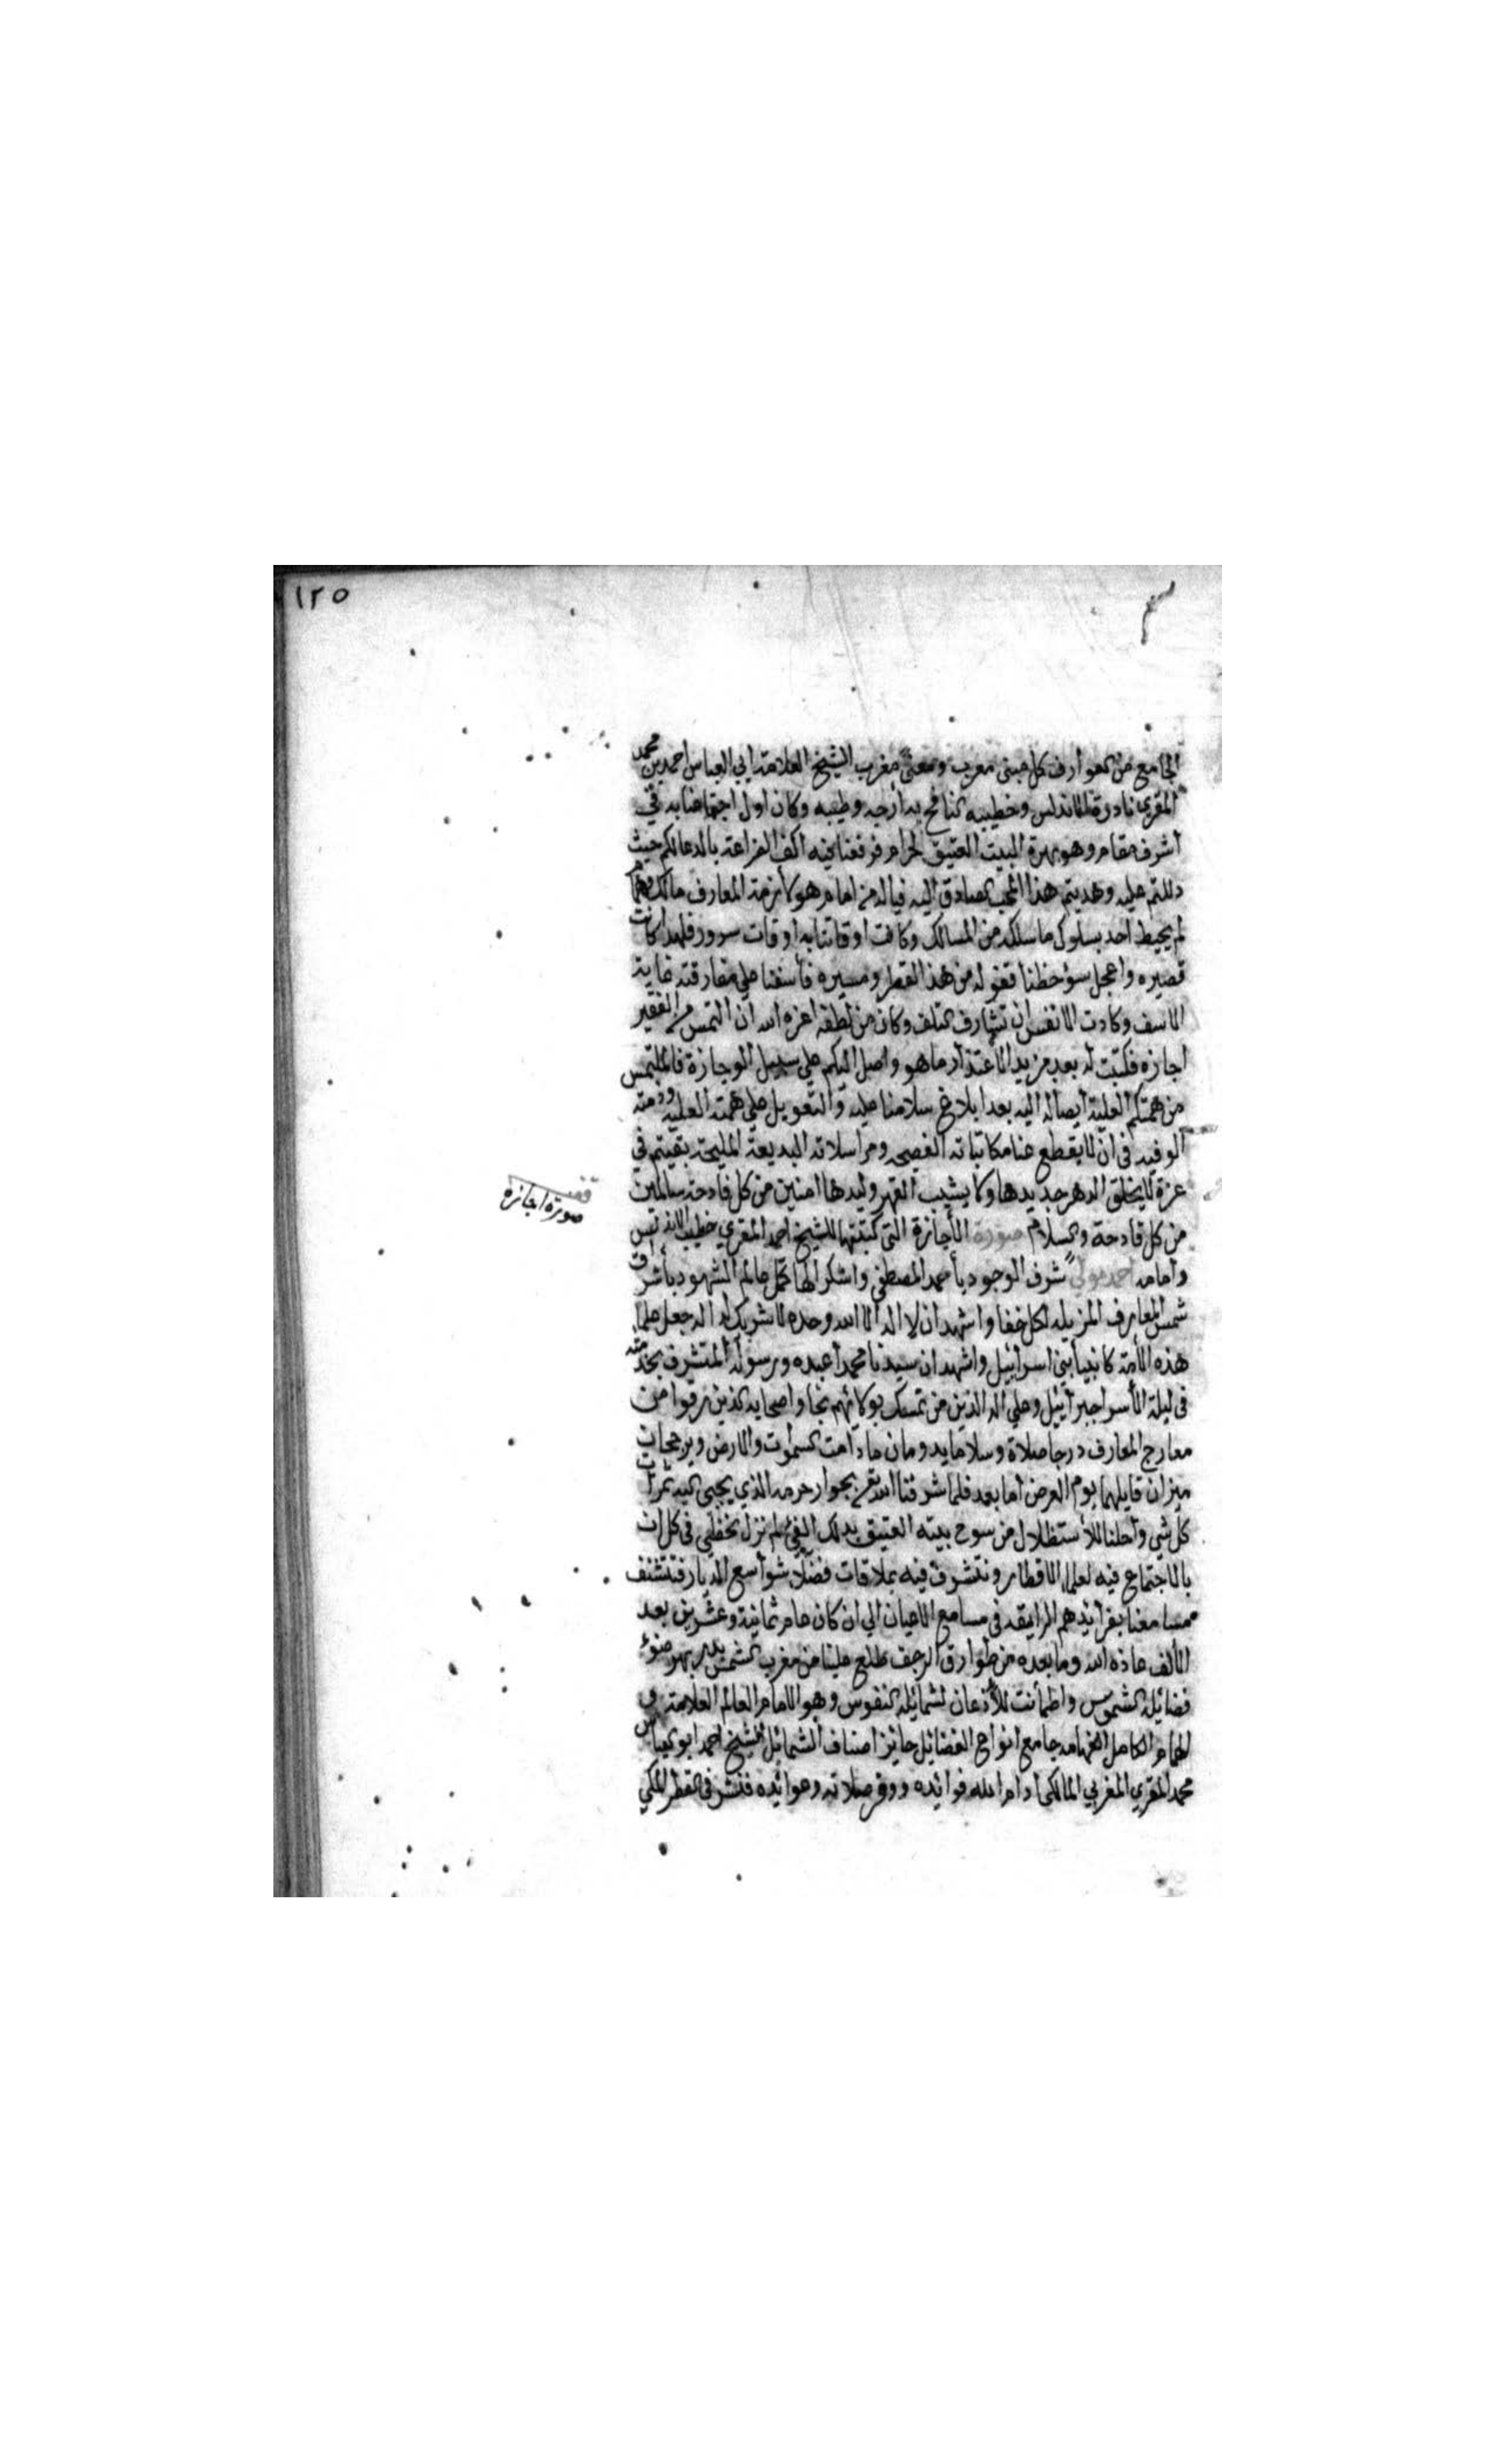 ١٢٥
الجامع من العوارف كل مبنى معرب ومعنى مغرب الشيخ العلامة ابي العباس احمد بن محمد
المقري نادرة الاندلس وخطيبه النافح به ارجه وطيبه وكان اول اجتماعنا به في
اشرف مقام وهو بهرة البيت العتيق الحرام فرفعنا فيه اكف الضراعة بالدعا لكم حيث
دللتم عليه وهديتم هذا المحب الصادق اليه فياله من امام هو لازمة المعارف مالك وهمام
لم يحيط احد بسلوك ما سلكه من المسالك وكانت اوقاتنا به اوقات سرور فلهذا كانت
قصيره واعجل سوء حظنا قفوله من هذا القطر ومسيره فأسفنا على مفارقته غاية
الاسف وكادت الانفس ان تشارف التلف وكان من لطفه اعزه الله ان التمس من الفقير
اجازه فكتبت له بعد مزيد الاعتذار ما هو واصل اليكم على سبيل الوجازة فالملتمس
من همتكم العلية ايصاله اليه بعد ابلاغ سلامنا عليه والتعويل على همته العليه وذمته
الوفيه في ان لا يقطع عنا مكاتباته الفصيحه ومراسلاته البديعة المليحة بقيتم في
عزة لا يخلق الدهر جديدها ولا يشيب القهر وليدها امنين من كل فادحة سالمين
من كل قادحة والسلام صورة الأجازة التي كتبتها للشيخ احمد المقري خطيب الاندلس
وامامه احمد مولى شرف الوجود بأحمد المصطفى واشكر الها كمل عالم الشهود بأشراق
شمس المعارف المزيله لكل خفا واشهد ان لا اله الا الله وحده لا شريك له اله جعل علما
هذه الأمة كانبيا بني اسرائيل واشهد ان سيدنا محمدا عبده ورسوله المتشرف بخدمته
في ليلة الأسرا جبرائيل وعلى اله الذين من تمسك بولائهم نجا واصحابه الذين رقوا من
معارج المعارف درجا صلاة وسلاما يدومان ما دامت السموات والارض ويرجحان
ميزان قايلهما يوم العرض اما بعد فلما شرفنا الله تعالى بجوار حرمه الذي يجبى اليه ثمرات
كل شي واحلنا للأستظلال من سوح بيته العتيق بذلك الفيء لم نزل نحظى في كل ان
بالاجتماع فيه لعلماء الاقطار ونتشرف فيه بملاقات فضلا شواسع الديار فتتشنف
مسامعنا بفرائدهم الرايقه في مسامع الاعيان الي ان كان عام ثمانية وعشرين بعد
الألف عاذه الله وما بعده من طوارق الرجف طلع علينا من مغرب الشمس بدر بهر ضوء
فضائله الشموس واطمأنت للأذعان لشمائله النفوس وهو الامام العالم العلامة
الهمام الكامل الفهامه جامع انواع الفضائل حائز اصناف الشمائل الشيخ احمد ابو العباس
محمد المقري المغربي المالكي ادام الله فوائده ووفر صلاته وعوائده فنشر في القطر المكي
قف
صورة اجازه